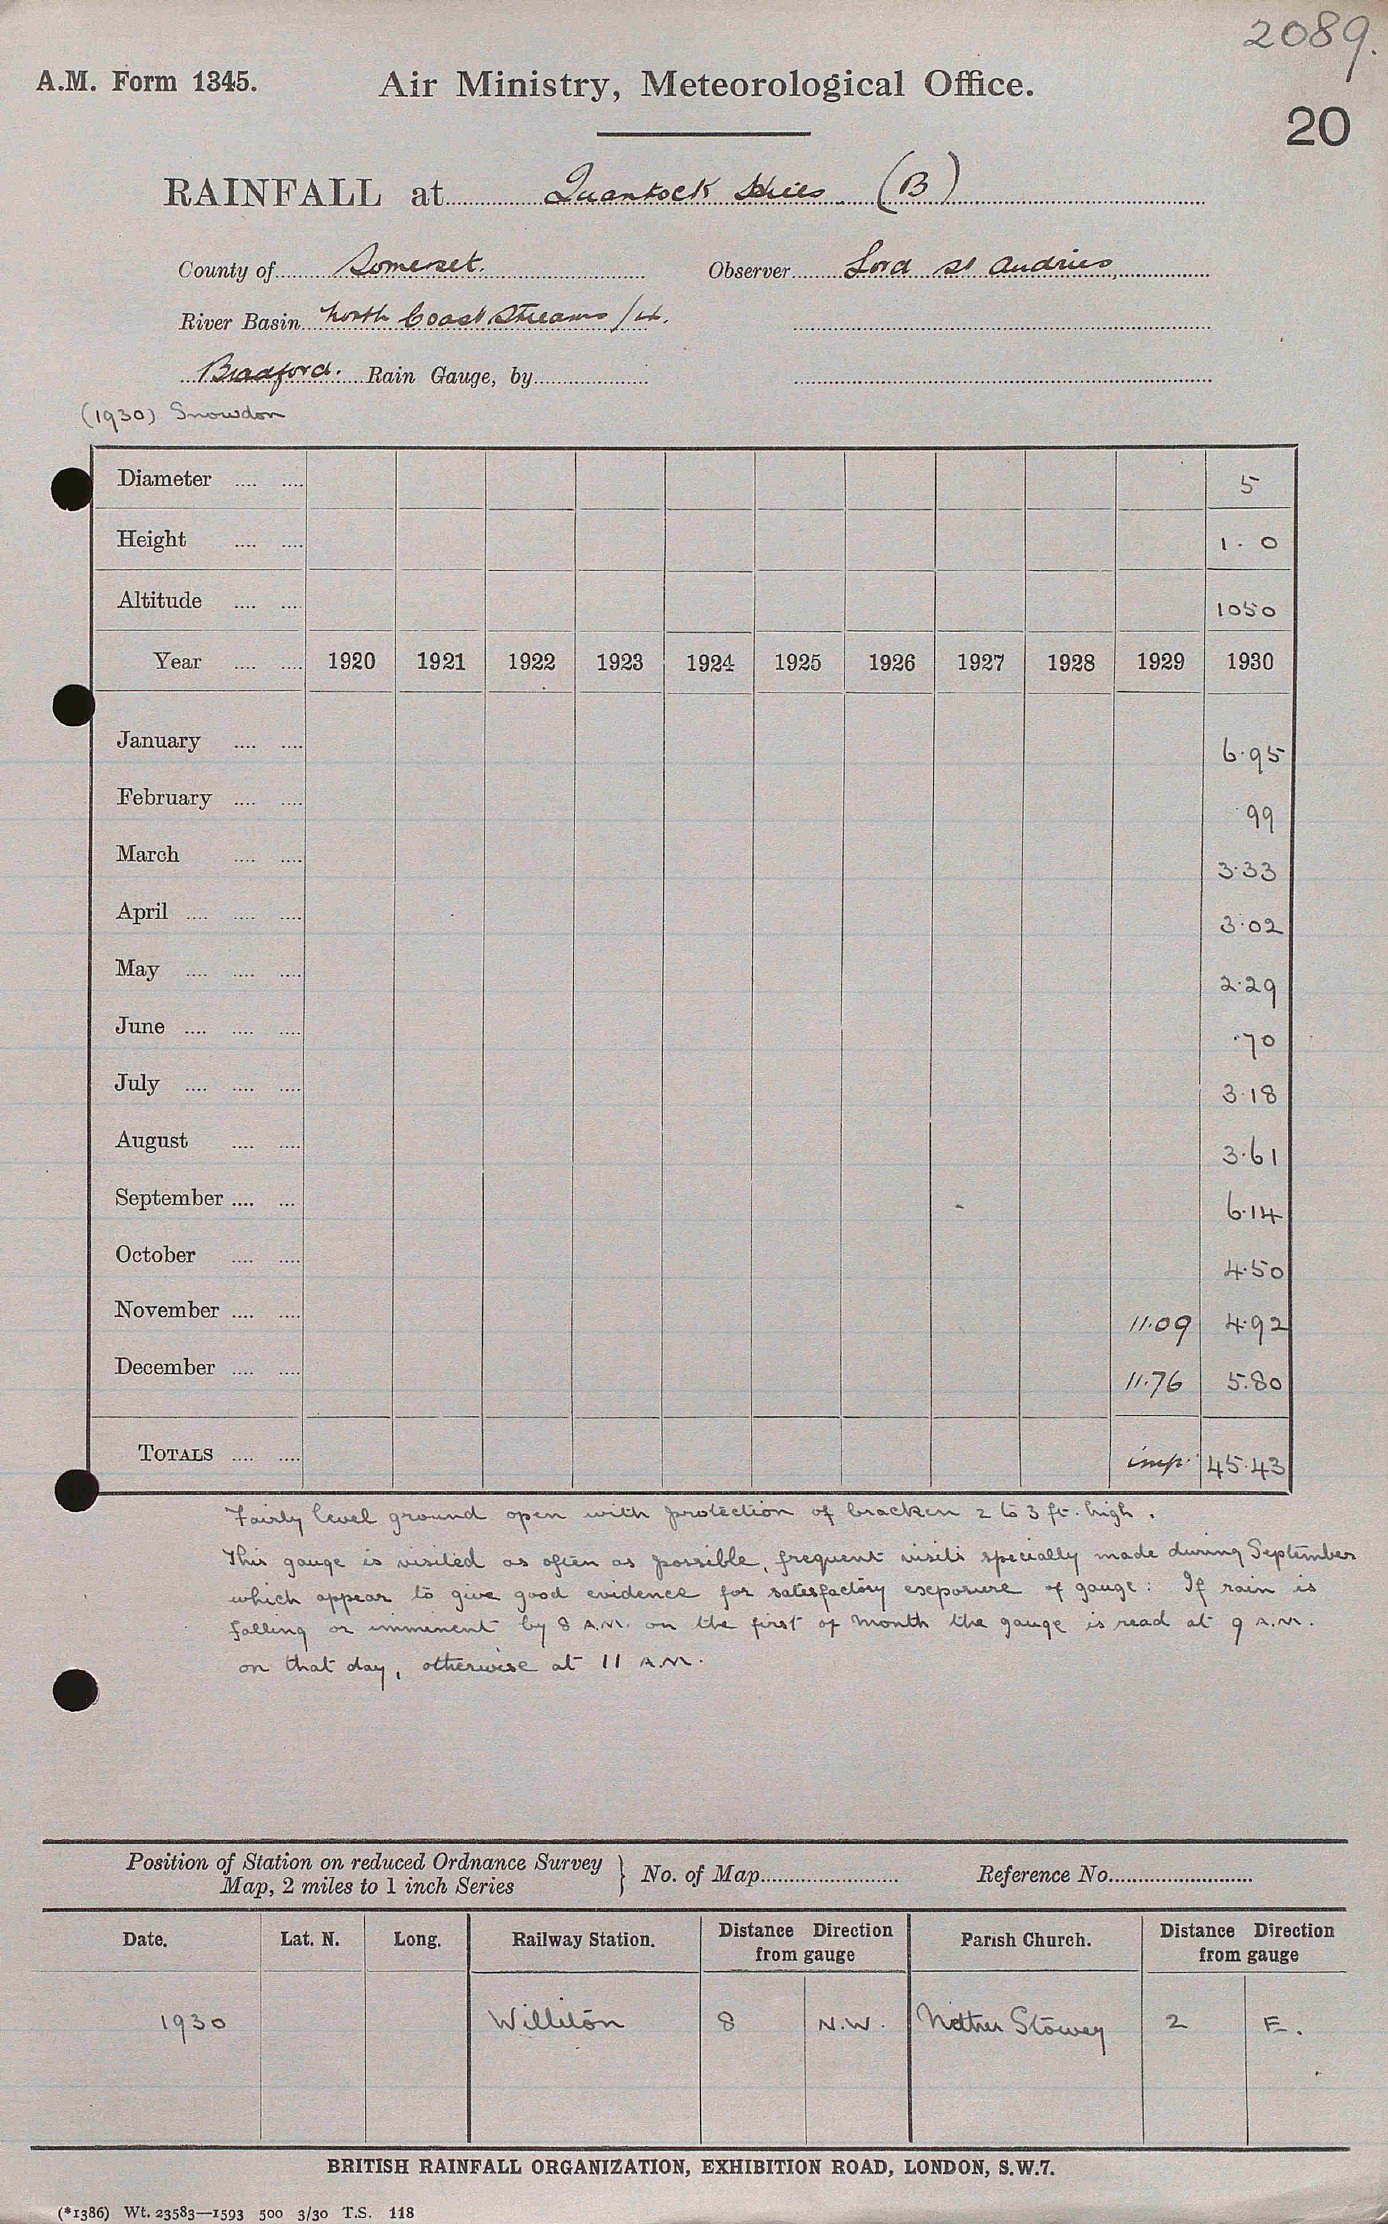 2089.
A.M. Form 1345. Air Ministry, Meteorological Office.
20
RAINFALL at Quantock Hills (B)
County of Somerset. Observer Lord St Audries,
River Basin North Coast Streams /
Bradford. Rain Gauge, by
(1930) Snowdon
Diameter .... .... 5
Height .... .... 1. 0
Altitude .... .... 1050
Year .... .... 1920 1921 1922 1923 1924 1925 1926 1927 1928 1929 1930
January .... .... 6.95
February .... .... 99
March .... .... 3.33
April .... .... .... 3.02
May .... .... .... 2.29
June .... .... .... .70
July .... .... .... 3.18
August .... .... 3.61
September .... ... 6.14
October .... .... 4.50
November .... .... 11.09 4.92
December .... .... 11.76 5.80
TOTALS .... .... imp. 45.43
Fairly level ground open with protection of bracken 2 to 3 ft. high.
This gauge is visited as often as possible, frequent visits specially made during September
which appear to give good evidence for satisfactory exposure of gauge: If rain is
falling or imminent by 8 A.M. on the first of month the gauge is read at 9 A.M.
on that day, otherwise at 11 A.M.
Position of Station on reduced Ordnance Survey
Map, 2 miles to 1 inch Series } No. of Map Reference No.
Date. Lat. N. Long. Railway Station. Distance Direction from gauge Parish Church. Distance Direction from gauge
1930 Williton 8 N.W. Nether Stowey 2 E.
BRITISH RAINFALL ORGANIZATION, EXHIBITION ROAD, LONDON, S.W.7.
(*1386) Wt. 23583—1593 500 3/30 T.S. 118